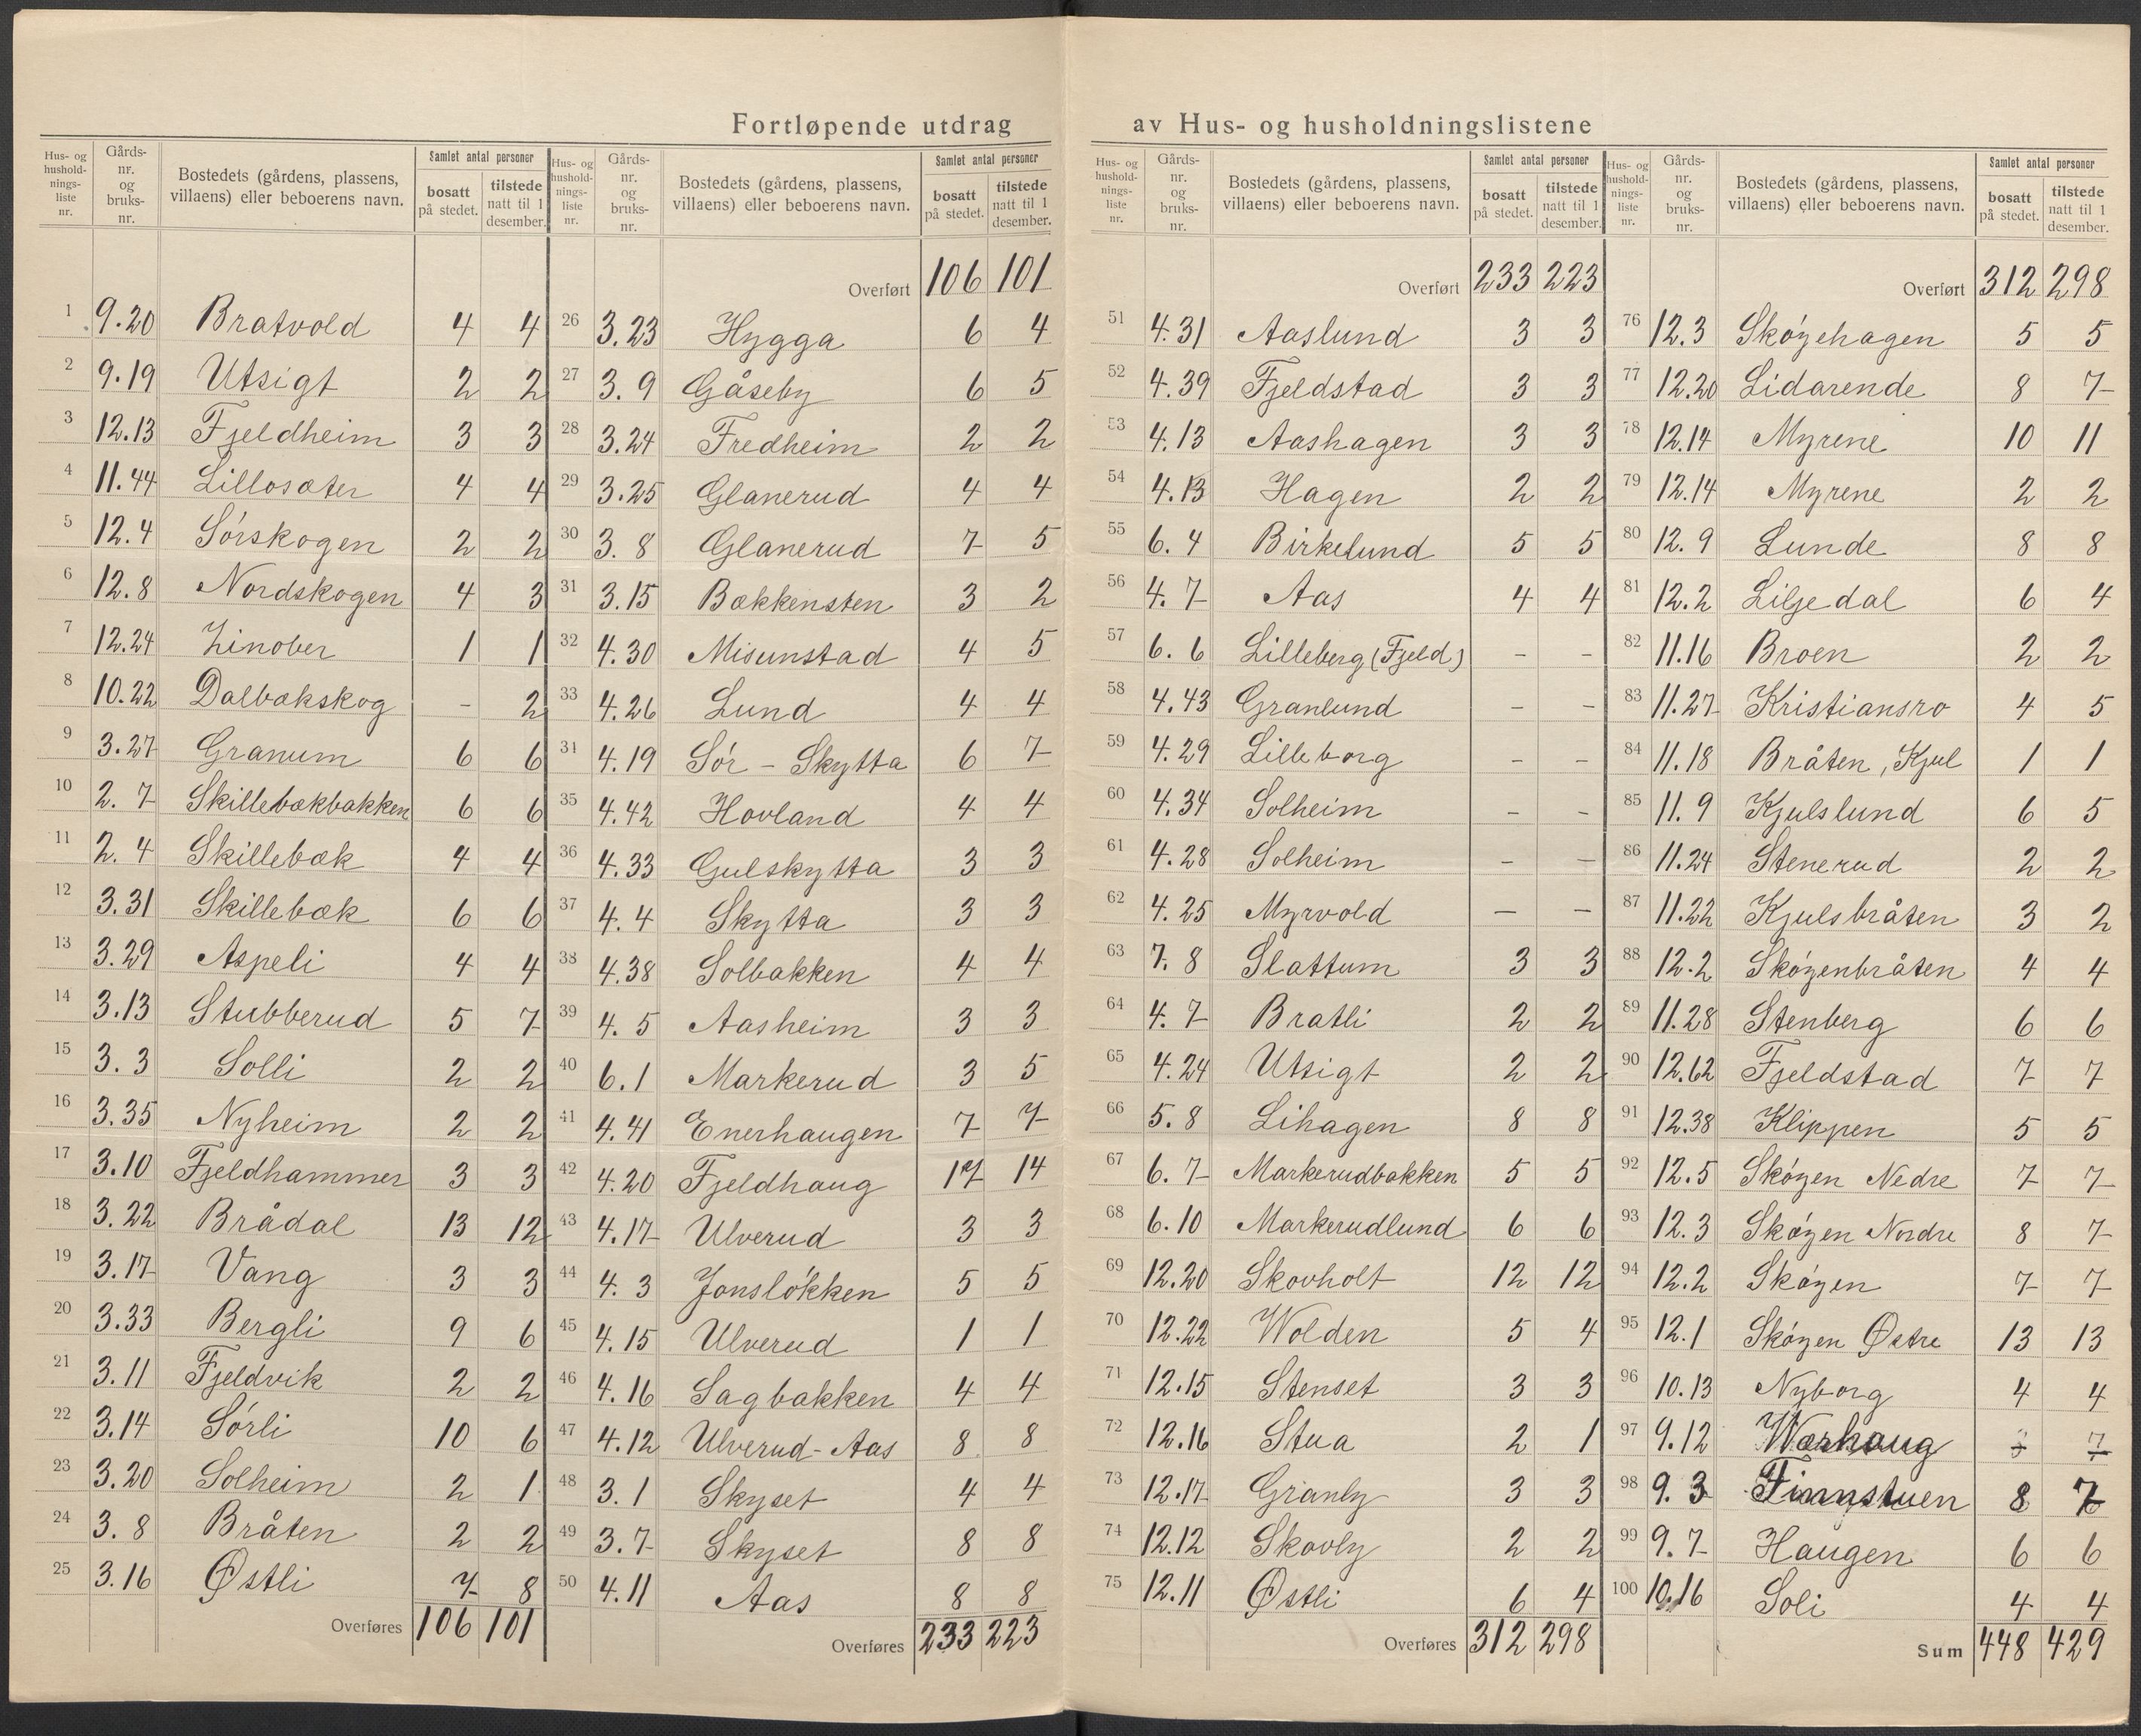 Fortløpende utdrag av Hus- og husholdningslistene
Hus- og hushold-nings-liste nr. | Gårds-nr. og bruks-nr. | Bostedets (gårdens, plassens, villaens) eller beboerens navn. | Samlet antal personer | bosatt på stedet. | tilstede natt til 1 desember.
1 9.20 Bratvold 4 4
2 9.19 Utsigt 2 2
3 12.13 Fjeldheim 3 3
4 11.44 Lillosæter 4 4
5 12.4 Sórskogen 2 2
6 12.8 Nordskogen 4 3
7 12.24 Zinober 1 1
8 10.22 Dalbækskog - 2
9 3.27 Granum 6 6
10 2.7 Skillebækbakken 6 6
11 2.4 Skillebæk 4 4
12 3.31 Skillebæk 6 6
13 3.29 Aspeli 4 4
14 3.13 Stubberud 5 7
15 3.3 Solli 2 2
16 3.35 Nyheim 2 2
17 3.10 Fjeldhammer 3 3
18 3.22 Brådal 13 12
19 3.17 Vang 3 3
20 3.33 Bergli 9 6
21 3.11 Fjeldvik 2 2
22 3.14 Sórli 10 6
23 3.20 Solheim 2 1
24 3.8 Bråten 2 2
25 3.16 Østli 7 8
Overføres 106 101
Hus- og hushold-nings-liste nr. | Gårds-nr. og bruks-nr. | Bostedets (gårdens, plassens, villaens) eller beboerens navn. | Samlet antal personer | bosatt på stedet. | tilstede natt til 1 desember.
Overført 106 101
26 3.23 Hygga 6 4
27 3.9 Gåseby 6 5
28 3.24 Fredheim 2 2
29 3.25 Glanerud 4 4
30 3.8 Glanerud 7 5
31 3.15 Bækkensten 3 2
32 4.30 Misunstad 4 5
33 4.26 Lund 4 4
34 4.19 Sór - Skytta 6 7
35 4.42 Hovland 4 4
36 4.33 Gulskytta 3 3
37 4.4 Skytta 3 3
38 4.38 Solbakken 4 4
39 4.5 Aasheim 3 3
40 6.1 Markerud 3 5
41 4.41 Enerhaugen 7 7
42 4.20 Fjeldhaug 17 14
43 4.17 Ulverud 3 3
44 4.3 Jonslókken 5 5
45 4.15 Ulverud 1 1
46 4.16 Sagbakken 4 4
47 4.12 Ulverud-Aas 8 8
48 3.1 Skyset 4 4
49 3.7 Skyset 8 8
50 4.11 Aas 8 8
Overføres 233 223
Hus- og hushold-nings-liste nr. | Gårds-nr. og bruks-nr. | Bostedets (gårdens, plassens, villaens) eller beboerens navn. | Samlet antal personer | bosatt på stedet. | tilstede natt til 1 desember.
Overført 233 223
51 4.31 Aaslund 3 3
52 4.39 Fjeldstad 3 3
53 4.13 Aashagen 3 3
54 4.13 Hagen 2 2
55 6.4 Birkelund 5 5
56 4.7 Aas 4 4
57 6.6 Lilleberg (Fjeld) - -
58 4.43 Granlund - -
59 4.29 Lilleborg - -
60 4.34 Solheim - -
61 4.28 Solheim - -
62 4.25 Myrvold - -
63 7.8 Slattum 3 3
64 4.7 Bratli 2 2
65 4.24 Utsigt 2 2
66 5.8 Lihagen 8 8
67 6.7 Markerudbakken 5 5
68 6.10 Markerudlund 6 6
69 12.20 Skovholt 12 12
70 12.22 Wolden 5 4
71 12.15 Stenset 3 3
72 12.16 Stua 2 1
73 12.17 Granly 3 3
74 12.12 Skovly 2 2
75 12.11 Østli 6 4
Overføres 312 298
Hus- og hushold-nings-liste nr. | Gårds-nr. og bruks-nr. | Bostedets (gårdens, plassens, villaens) eller beboerens navn. | Samlet antal personer | bosatt på stedet. | tilstede natt til 1 desember.
Overført 312 298
76 12.3 Skóyehagen 5 5
77 12.20 Lidarende 8 7
78 12.14 Myrene 10 11
79 12.14 Myrene 2 2
80 12.9 Lunde 8 8
81 12.2 Liljedal 6 4
82 11.16 Broen 2 2
83 11.27 Kristiansro 4 5
84 11.18 Bråten, Kjul 1 1
85 11.9 Kjulslund 6 5
86 11.24 Stenerud 2 2
87 11.22 Kjulsbråten 3 2
88 12.2 Skóyenbråten 4 4
89 11.28 Stenberg 6 6
90 12.62 Fjeldstad 7 7
91 12.38 Klippen 5 5
92 12.5 Skóyen Nedre 7 7
93 12.3 Skóyen Nordre 8 7
94 12.2 Skóyen 7 7
95 12.1 Skóyen Østre 13 13
96 10.13 Nyborg 4 4
97 9.12 Wærhaug
98 9.3 Finnstuen 8 7
99 9.7 Haugen 6 6
100 10.16 Soli 4 4
Sum 448 429